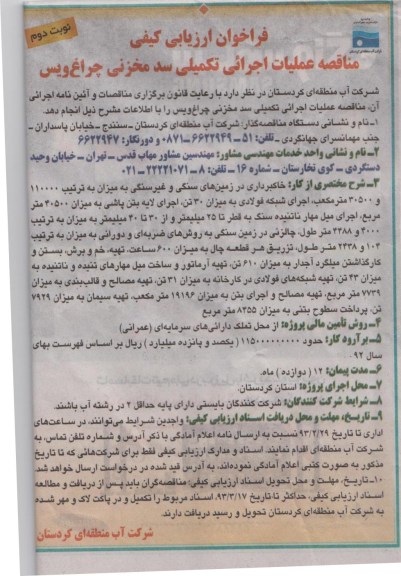 نوبت دوم
فراخوان ارزیابی کیفی
مناقصه عملیات اجرائی تکمیلی سد مخزنی چراغ‌ویس
شرکت آب منطقه‌ای کردستان در نظر دارد با رعایت قانون برگزاری مناقصات و آئین نامه اجرائی
آن، مناقصه عملیات اجرائی تکمیلی سد مخزنی چراغ‌ویس را با اطلاعات مشرح ذیل انجام دهد.
۱- نام و نشانی دستگاه مناقصه‌گذار: شرکت آب منطقه‌ای کردستان - سنندج - خیابان پاسداران -
جنب مهمانسرای جهانگردی - تلفن: ۵۱ - ۶۶۲۲۹۴۹-۰۸۷۱ و دورنگار: ۶۶۲۲۹۴۷
۲- نام و نشانی واحد خدمات مهندسی مشاور: مهندسین مشاور مهاب قدس - تهران - خیابان وحید
دستگردی - کوی تخارستان - شماره ۱۶ - تلفن: ۸ - ۲۲۲۲۱۰۷۱ - ۰۲۱
۳- شرح مختصری از کار: خاکبرداری در زمین‌های سنگی و غیرسنگی به میزان به ترتیب ۱۱۰۰۰۰
و ۳۰۵۰۰ مترمکعب، اجرای شبکه فولادی به میزان ۳۰ تن، اجرای لایه بتن پاشی به میزان ۳۰۵۰۰ متر
مربع، اجرای میل مهار ناتنیده سنگ به قطر تا ۲۵ میلیمتر و از ۳۰ تا ۴۰ میلیمتر به میزان به ترتیب
۴۰۰۰ و ۲۳۸۸ متر طول، چالزنی در زمین سنگی به روش‌های ضربه‌ای و دورانی به میزان به ترتیب
۱۰۴ و ۲۴۳۸ متر طول، تزریق هر قطعه چال به میزان ۶۰۰ ساعت، تهیه، خم و برش، بستن و
کارگذاشتن میلگرد آجدار به میزان ۶۱۰ تن، تهیه آرماتور و ساخت میل مهارهای تنیده و ناتنیده به
میزان ۴۳ تن، تهیه شبکه‌های فولادی در کارخانه به میزان ۳۱ تن، تهیه مصالح و قالب‌بندی به میزان
۷۷۳۹ متر مربع، تهیه مصالح و اجرای بتن به میزان ۱۹۱۹۶ متر مکعب، تهیه سیمان به میزان ۷۹۲۹
تن، پرداخت سطوح بتنی به میزان ۸۲۵۵ متر مربع
۴- روش تأمین مالی پروژه: از محل تملک دارائی‌های سرمایه‌ای (عمرانی)
۵- برآورد کار: حدود ۱۱۵۰۰۰۰۰۰۰۰۰ (یکصد و پانزده میلیارد) ریال بر اساس فهرست بهای
سال ۹۲.
۶- مدت پیمان: ۱۲ (دوازده) ماه.
۷- محل اجرای پروژه: استان کردستان.
۸- شرایط شرکت کنندگان: شرکت کنندگان بایستی دارای پایه حداقل ۲ در رشته آب باشند.
۹- تاریخ، مهلت و محل دریافت اسناد ارزیابی کیفی: واجدین شرایط می‌توانند، در ساعت‌های
اداری تا تاریخ ۹۳/۲/۲۹ نسبت به ارسال نامه اعلام آمادگی با ذکر آدرس و شماره تلفن تماس، به
شرکت آب منطقه‌ای اقدام نمایند. اسناد و مدارک ارزیابی کیفی فقط برای شرکت‌هائی که تا تاریخ
مذکور به صورت کتبی اعلام آمادگی نموده‌اند، به آدرس قید شده در درخواست ارسال خواهد شد.
۱۰- تاریخ، مهلت و محل تحویل اسناد ارزیابی کیفی: مناقصه‌گران باید پس از دریافت و مطالعه
اسناد ارزیابی کیفی، حداکثر تا تاریخ ۹۳/۳/۱۷، اسناد مربوط را تکمیل و در پاکت لاک و مهر شده
به شرکت آب منطقه‌ای کردستان تحویل و رسید دریافت دارند.
شرکت آب منطقه‌ای کردستان